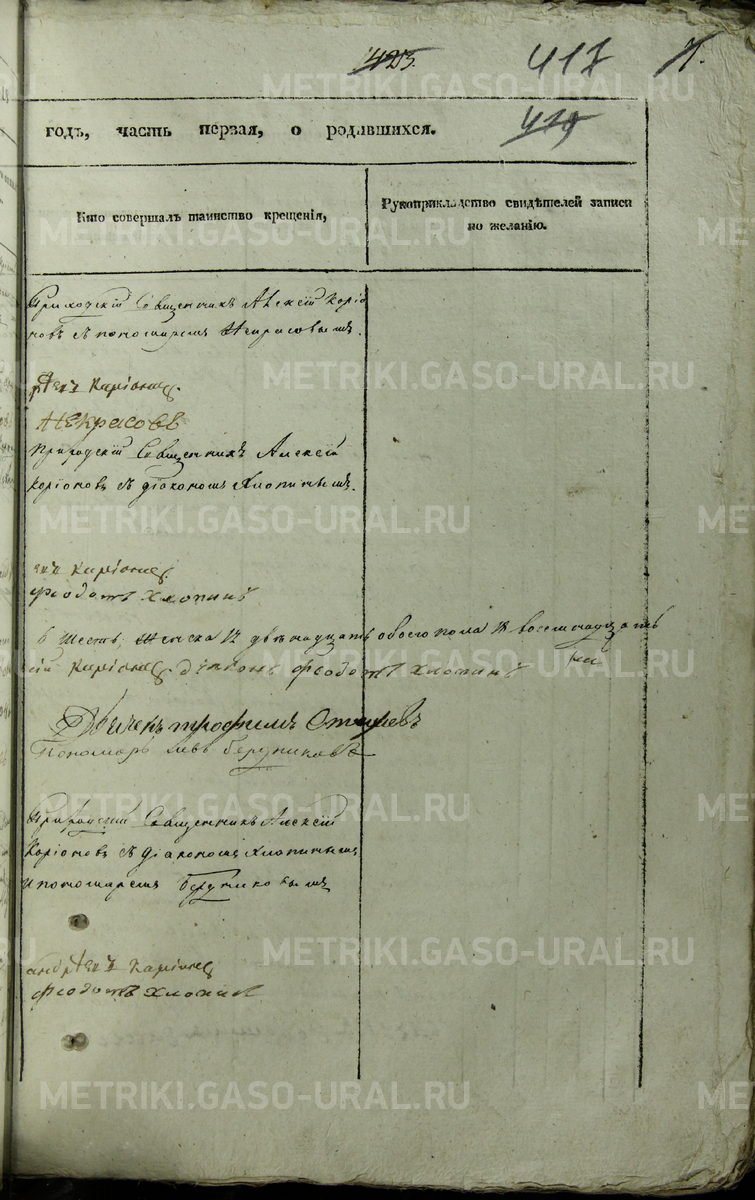 423.
417
419
годъ, часть первая, о родившихся.
Кто совершалъ таинство крещенія,
Рукоприкладство свидѣтелей записи по желанію.
Приходскій Священникъ Алексій Каріо
новъ съ пономаремъ Некрасовымъ.
Каріоновъ
Некрасовъ
Приходскій Священникъ Алексій
Каріоновъ съ діакономъ Хлопинымъ.
Каріоновъ
Феодотъ Хлопинъ
6 шесть, женска 12 двенатцать обоего пола 18 восемнатцать
Каріоновъ діаконъ Феодотъ Хлопинъ
Дьячекъ Трофимъ
Пономарь
Приходскій Священникъ Алексій
Каріоновъ съ діакономъ Хлопинымъ
и пономаремъ
Каріоновъ
Феодотъ Хлопинъ
METRIKI.GASO-URAL.RU